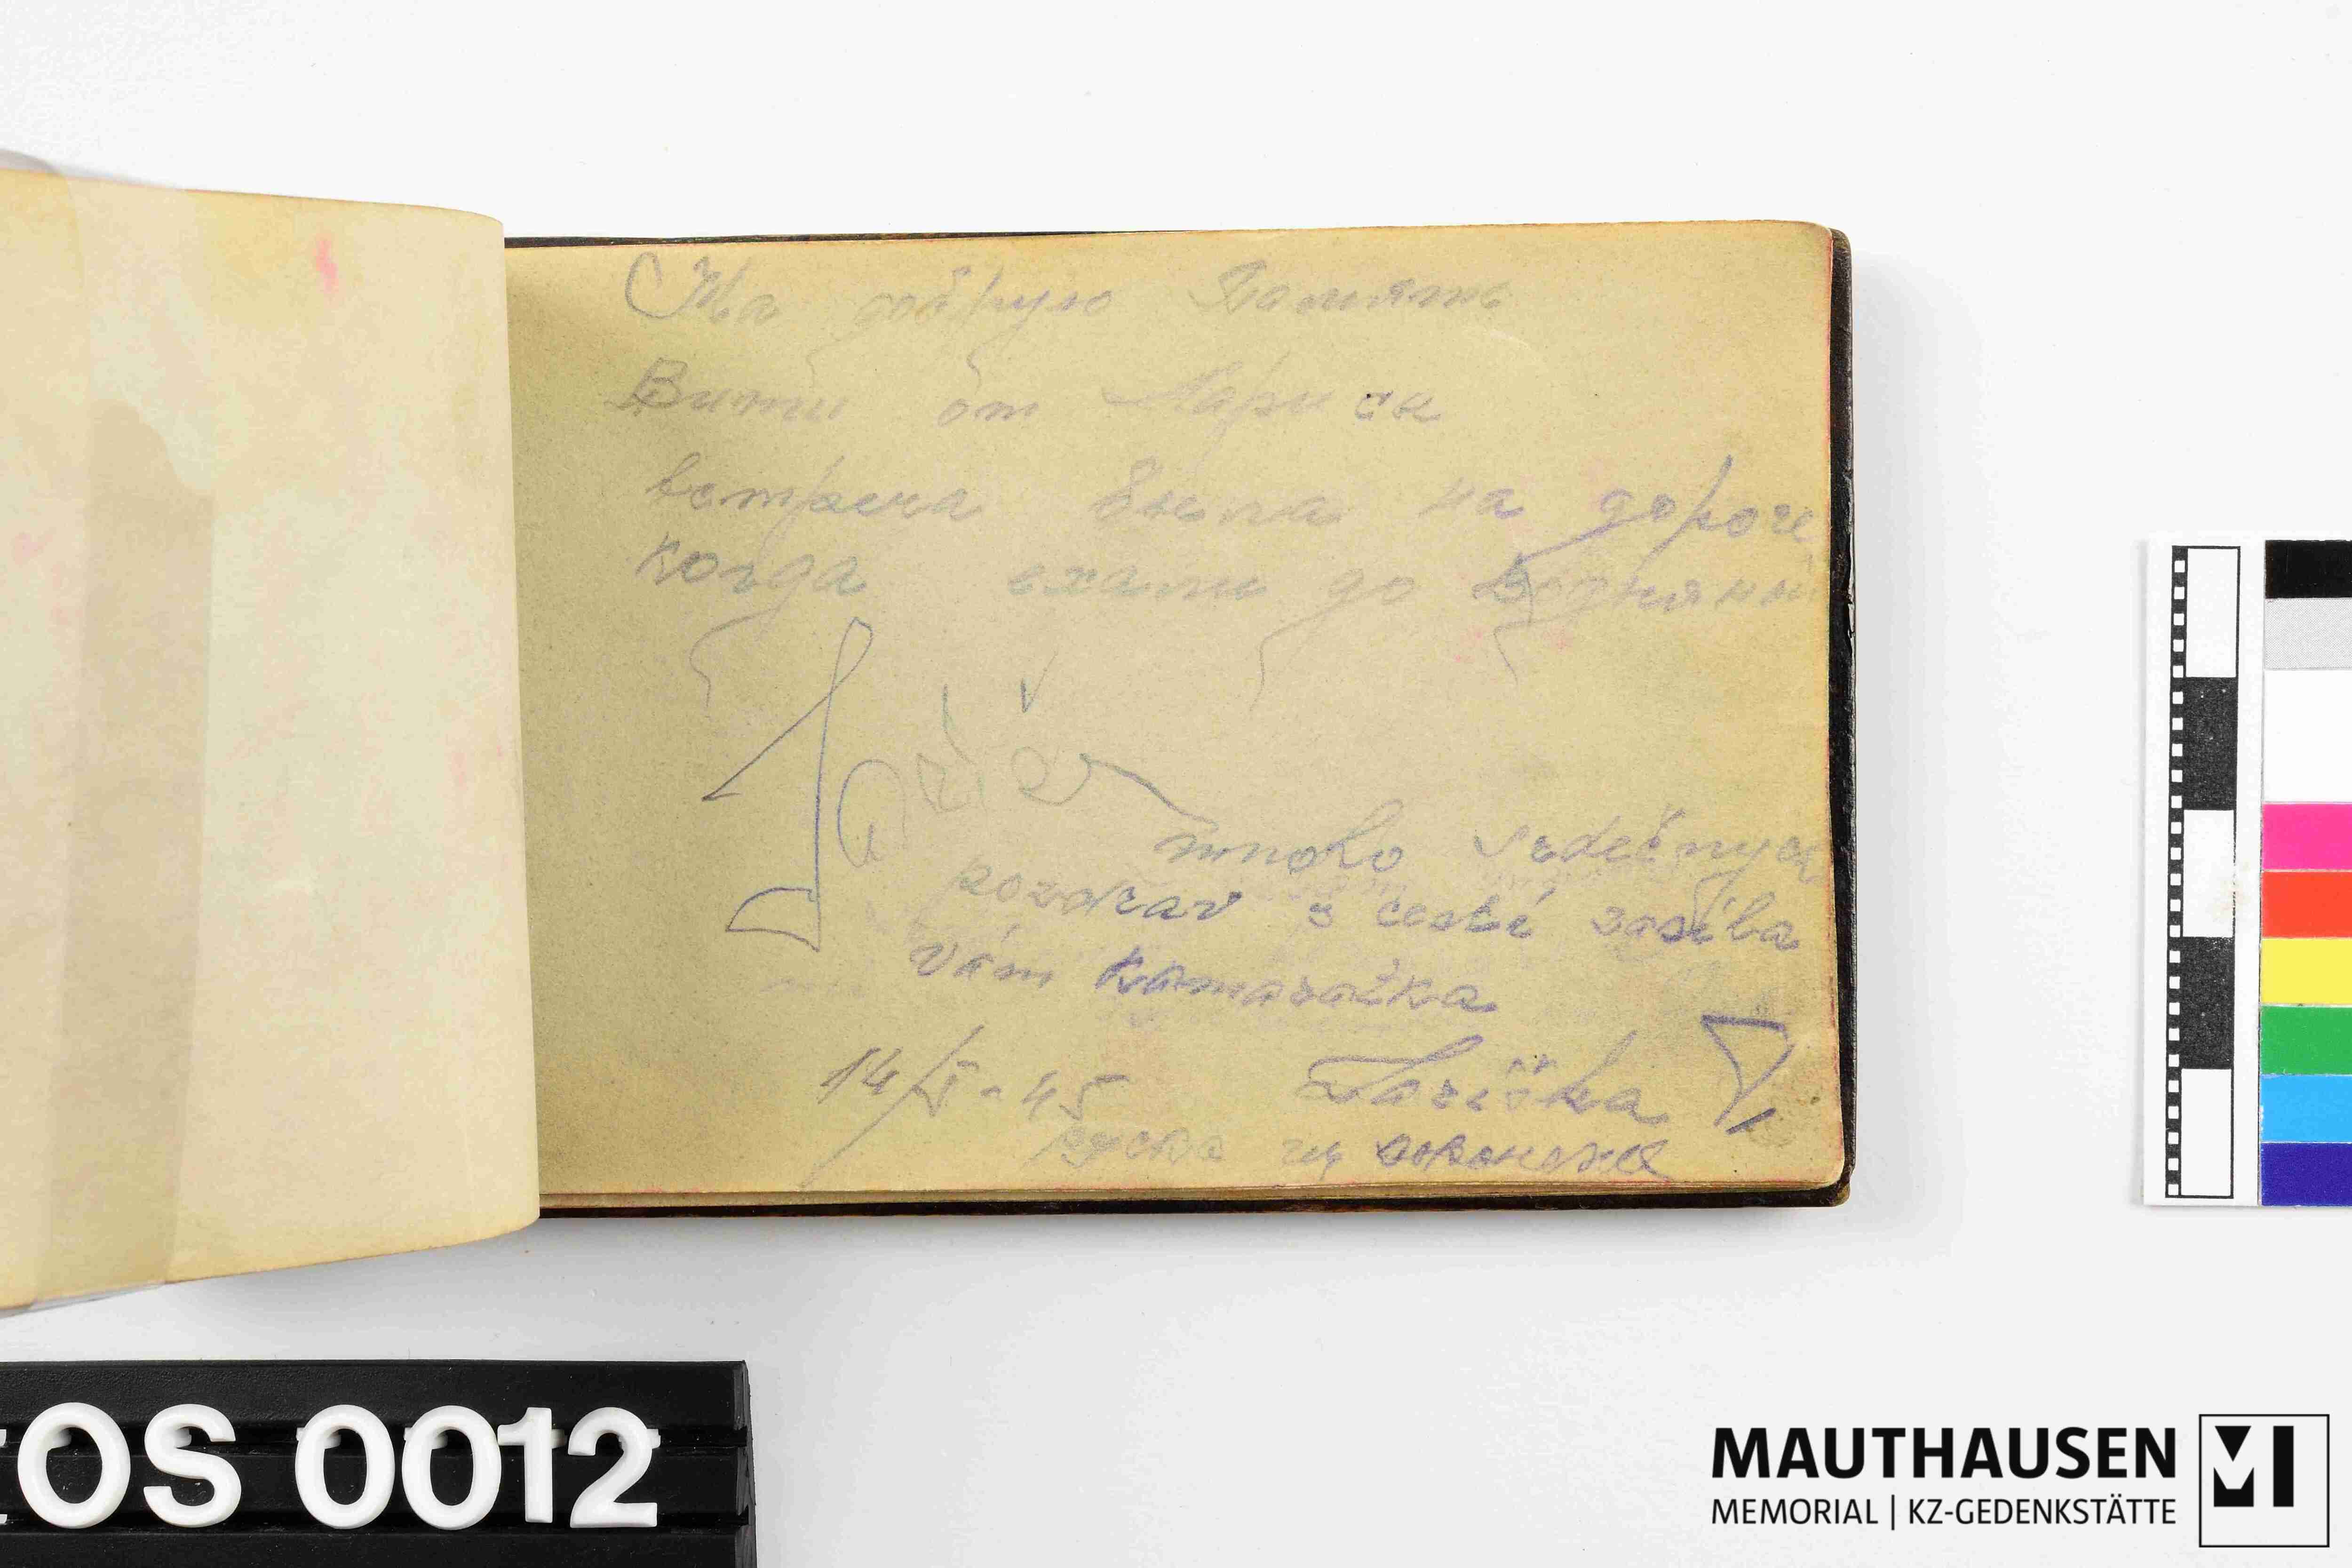 На добрую Память
Вити от Лариси
встреча была на дороге
когда ехали до Водняный
mnoho srdečnych
pozdrav z české posíla
vám kamaračka
14/V-45 Lariška
руска из воронежа
OS 0012
MAUTHAUSEN
MEMORIAL | KZ-GEDENKSTÄTTE